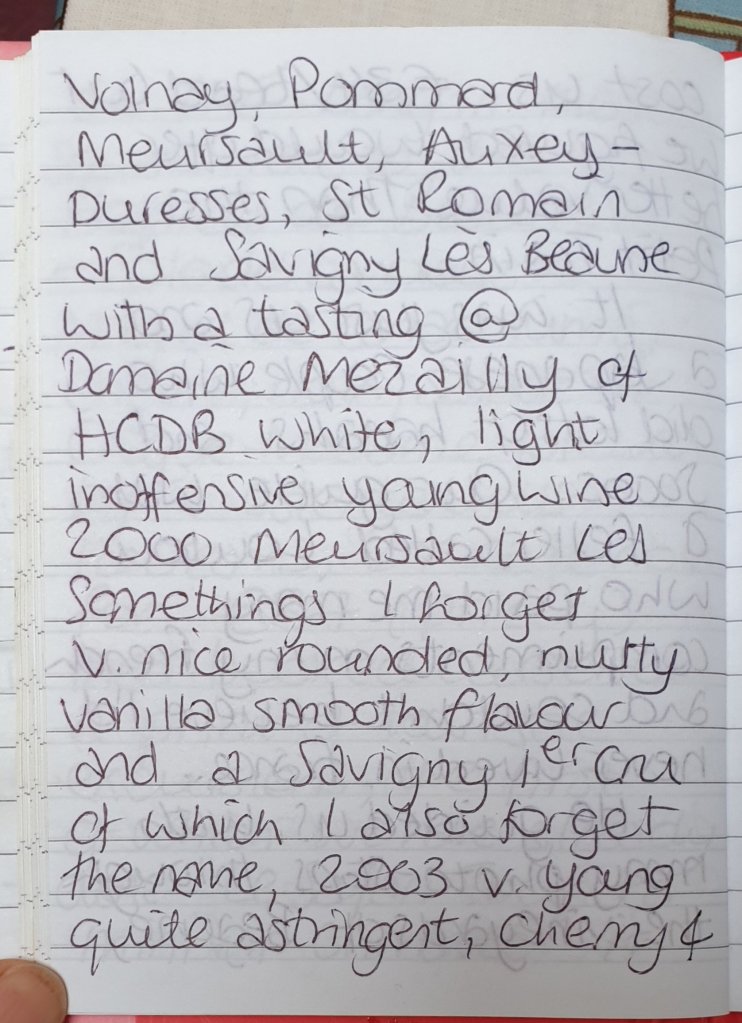 Volnay, Pommard,
Meursault, Auxey-
Duresses, St Romain
and Savigny Lès Beaune
with a tasting @
Domaine Mezailly of
HCDB white, light
inoffensive young wine
2000 Meursault Les
Somethings I forget
v. nice rounded, nutty
vanilla smooth flavour
and a Savigny 1er Cru
of which I also forget
the name, 2003 v. young
quite astringent, cherry &